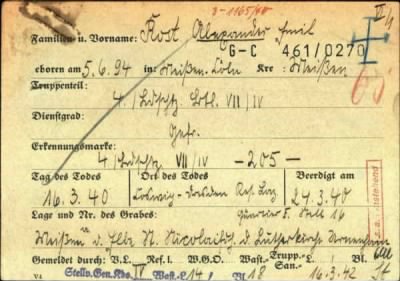 3-1165/40
IV/1
Familien u. Vorname: Rost Alexander Emil
G-C 461/0270
geboren am 5.6.94 in: Meißen-Cöln Kre : Meißen
Truppenteil:
4./Ldschtz. Btl. VII/IV
Dienstgrad:
Gefr.
Erkennungsmarke:
4/Ldschtz. VII/IV -205-
Tag des Todes Ort des Todes Beerdigt am
16.3.40 Dresden Res. Laz. 24.3.40
Lage und Nr. des Grabes: 5. Stell 16
Meißen a. Elbe N. Nicolaifrh. d. Lutherkirch
Gemeldet durch: V.L. Ref. I. W.G.O. Wast.- Trupp.- San.- L.
Stellv.Gen.Kdo. IV Wast. L 14/ 18 16.3.42 St
V4
z.a. nstehend